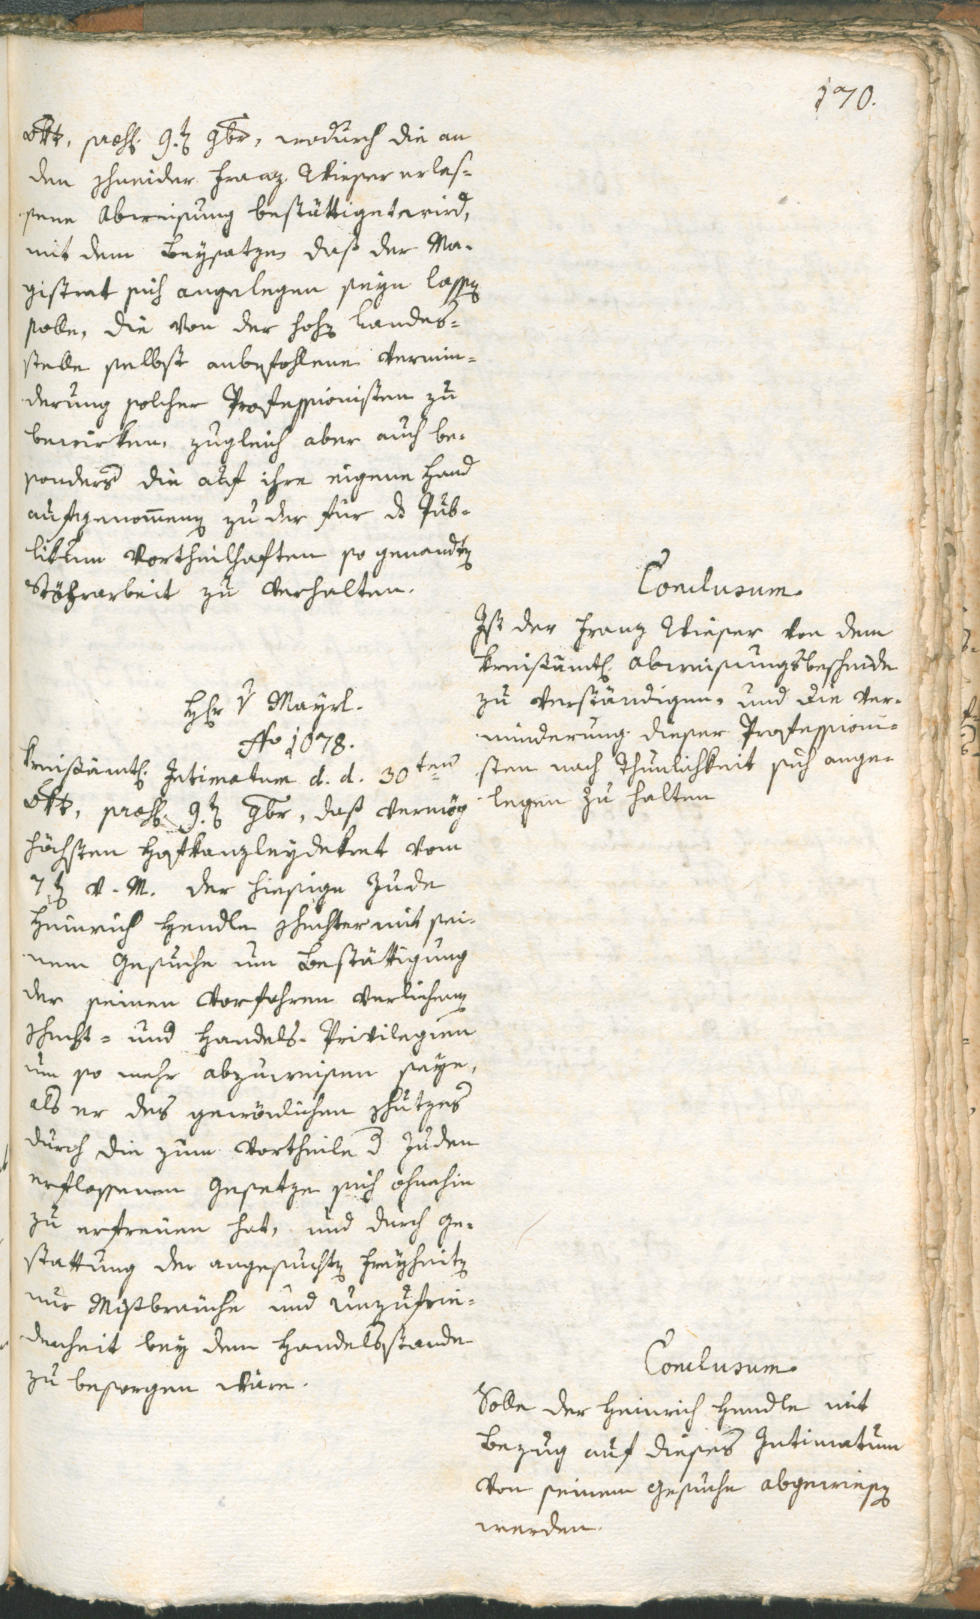 170.
8br, praes. 9.ten 9br, wodurch die an
den Schneider Franz Wieser erlas=
sene Abweisung bestättiget wird,
mit dem Beysatze, daß der Ma=
gistrat sich angelegen seyn lassen
solle, die von der hohen Landes=
stelle selbst anbefohlene Vermin=
derung solcher Professionisten zu
bewirken, zugleich aber auch be=
sonders die auf ihre eigene Hand
aufgenom̅enen zu der für das Pub=
likum vortheilhaften so genandten
Stöhrarbeit zu verhalten.
Conclusum.
Ist der Franz Wieser von dem
kreisämtl. Abweisungsbescheide
zu verständigen, und die Ver=
minderung dieser Professioni=
sten nach Thunlichkeit sich ange=
legen zu halten
H. v Mayrl.
No 1078.
Kreisämtl. Intimatum d. d. 30ten
8br, praes. 9.ten 9br, daß vermög
höchsten Hofkanzleydekret vom
7ten v. M. der hiesige Jude
Heinrich Hendle Schechter mit sei=
nem Gesuche um Bestättigung
der seinen Vorfahren verliehenen
Schecht= und Handels-Privilegien
um so mehr abzuweisen seye,
als er des gewönlichen Schutzes
durch die zum Vortheile d Juden
erflossenen Gesetze sich ohnehin
zu erfreuen hat, und durch Ge=
stattung der angesuchten Freyheiten
nur Mißbräuche und Unzufrie=
denheit bey dem Handelsstande
zu besorgen wäre.
Conclusum.
Solle der Heinrich Hendle mit
Bezug auf dieses Intimatum
von seinem Gesuche abgewiesen
werden.